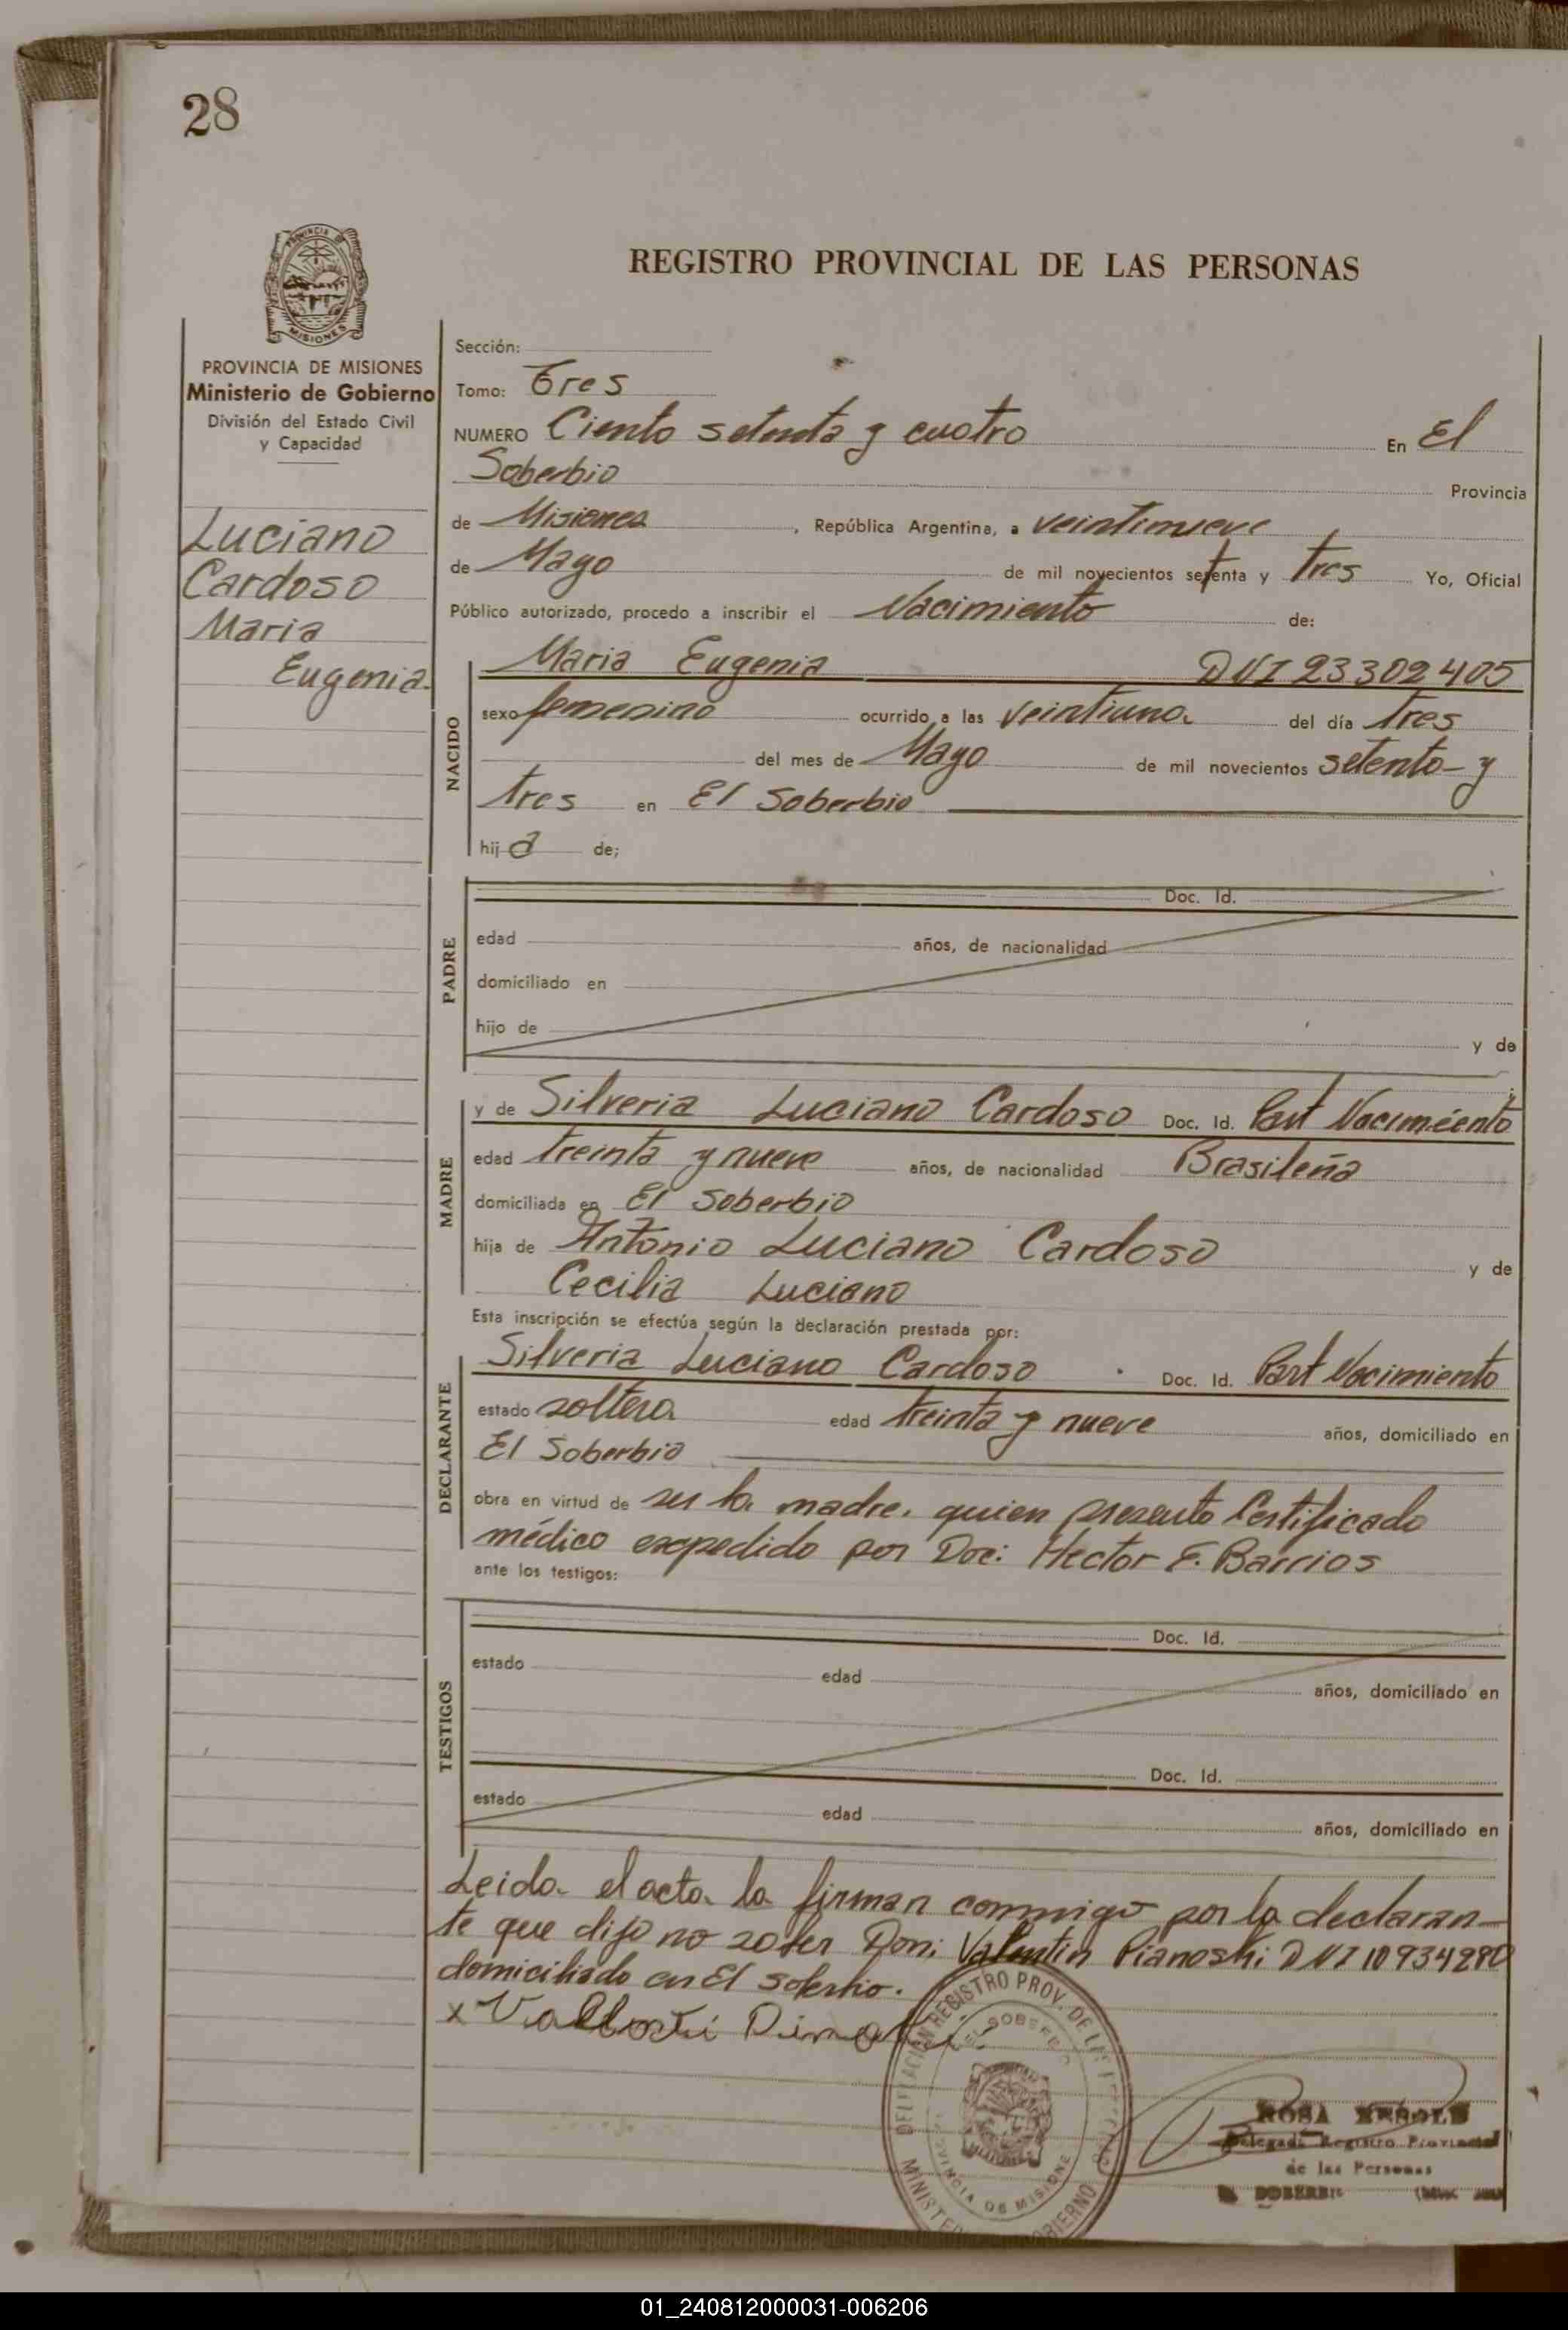 28
PROVINCIA DE MISIONES
Ministerio de Gobierno
División del Estado Civil
y Capacidad
Luciano
Cardoso
Maria
Eugenia
REGISTRO PROVINCIAL DE LAS PERSONAS
Sección:
Tomo: Tres
NUMERO Ciento setenta y cuatro En El
Soberbio Provincia
de Misiones, República Argentina, a veintinueve
de Mayo de mil novecientos setenta y tres Yo, Oficial
Público autorizado, procedo a inscribir el Nacimiento de:
NACIDO
Maria Eugenia DNI 23302405
sexo femenino ocurrido a las veintiuna del día tres
del mes de Mayo de mil novecientos setenta y
tres en El Soberbio
hija de;
PADRE
Doc. Id.
edad años, de nacionalidad
domiciliado en
hijo de y de
MADRE
y de Silveria Luciano Cardoso Doc. Id. Part Nacimiento
edad treinta y nueve años, de nacionalidad Brasileña
domiciliada en El Soberbio
hija de Antonio Luciano Cardoso y de
Cecilia Luciano
Esta inscripción se efectúa según la declaración prestada por:
DECLARANTE
Silveria Luciano Cardoso Doc. Id. Part Nacimiento
estado soltera edad treinta y nueve años, domiciliado en
El Soberbio
obra en virtud de ser la madre. quien presento Certificado
médico expedido por Doc: Hector F. Barrios
ante los testigos:
TESTIGOS
Doc. Id.
estado edad años, domiciliado en
Doc. Id.
estado edad años, domiciliado en
Leida el acta la firman conmigo por la declaran-
te que dijo no saber Don: Valentin Pianoski DNI 10934280
domiciliado en El Soberbio.
x
DELEGACION REGISTRO PROV. DE
EL SOBERBIO
PROVINCIA DE MISIONES
ROSA
Delegada Registro Provincial
de las Personas
SOBERBIO
01_240812000031-006206